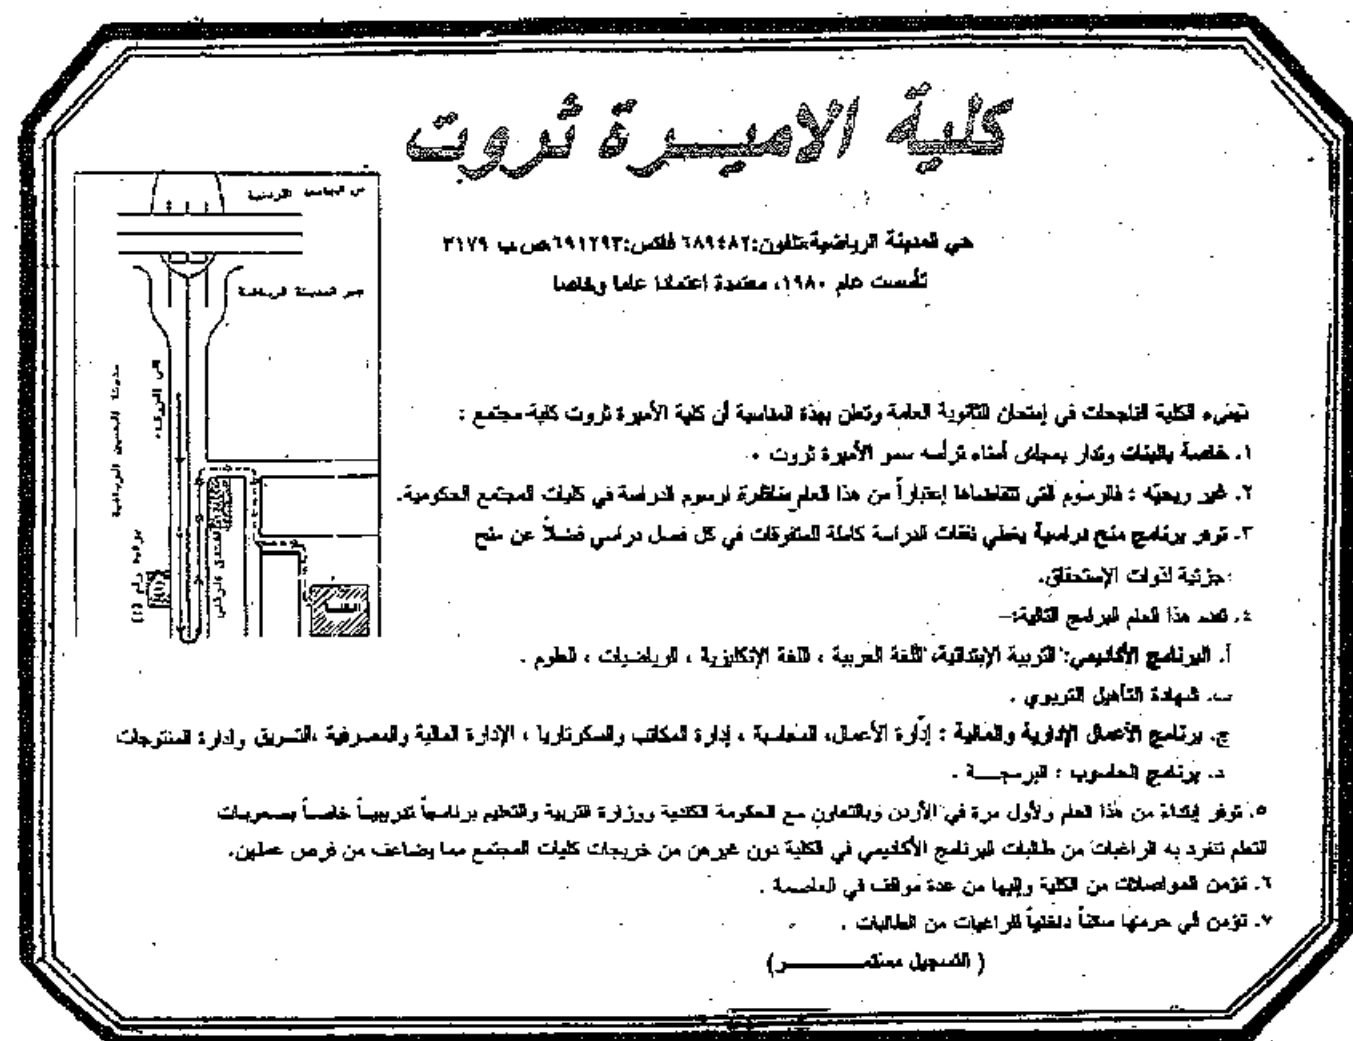 كلية الاميـــرة ثروت
حي المدينة الرياضية،تلفون:٦٨٩٤٨٢ فاكس:٦٩١٢٩٣،ص.ب ٣١٧٩
تأسست عام ١٩٨٠، معتمدة اعتمادا عاما وخاصا
من الجامعة الاردنية
جسر المدينة الرياضية
مدينة الحسين الرياضية
الى الزرقاء
بوابة رقم (٤)
الكلية
تهنىء الكلية الناجحات في إمتحان الثانوية العامة وتعلن بهذة المناسبة أن كلية الأميرة ثروت كلية مجتمع :
١. خاصة بالبنات وتدار بمجلس أمناء ترأسه سمو الأميرة ثروت .
٢. غير ربحيّه : فالرسوم التي تتقاضاها إعتباراً من هذا العام مناظرة لرسوم الدراسة في كليات المجتمع الحكومية.
٣. توفر برنامج منح دراسية يغطي نفقات الدراسة كاملة للمتفوقات في كل فصل دراسي فضلاً عن منح
جزئية لذوات الإستحقاق.
٤. تقدم هذا العام البرامج التالية:–
أ. البرنامج الأكاديمي: التربية الإبتدائية، اللغة العربية ، اللغة الإنكليزية ، الرياضيات ، العلوم .
ب. شهادة التأهيل التربوي .
ج. برنامج الأعمال الإدارية والمالية : إدارة الأعمال، المحاسبة ، إدارة المكاتب والسكرتاريا ، الإدارة المالية والمصرفية ،التسويق وإدارة المنتوجات
د. برنامج الحاسوب : البرمجـــة .
٥. توفر إبتداءً من هذا العام ولأول مرة في الأردن وبالتعاون مع الحكومة الكندية ووزارة التربية والتعليم برنامجاً تدريبيـاً خاصـاً بصعوبـات
التعلم تنفرد به الراغبات من طالبات البرنامج الأكاديمي في الكلية دون غيرهن من خريجات كليات المجتمع مما يضاعف من فرص عملهن.
٦. تؤمن المواصلات من الكلية وإليها من عدة مواقف في العاصمة .
٧. تؤمن في حرمها سكناً داخلياً للراغبات من الطالبات .
( التسجيل مستمـــــــر)